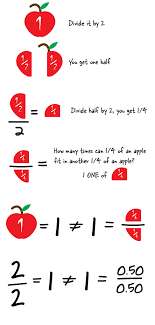 1 Divide it by 2
1/2 1/2 You get one half
1/2
2 = Divide half by 2, you get 1/4
= How many times can 1/4 of an apple
fit in another 1/4 of an apple?
1 ONE of
1 = 1 ≠ 1 =
2/2 = 1 ≠ 1 = 0.50/0.50